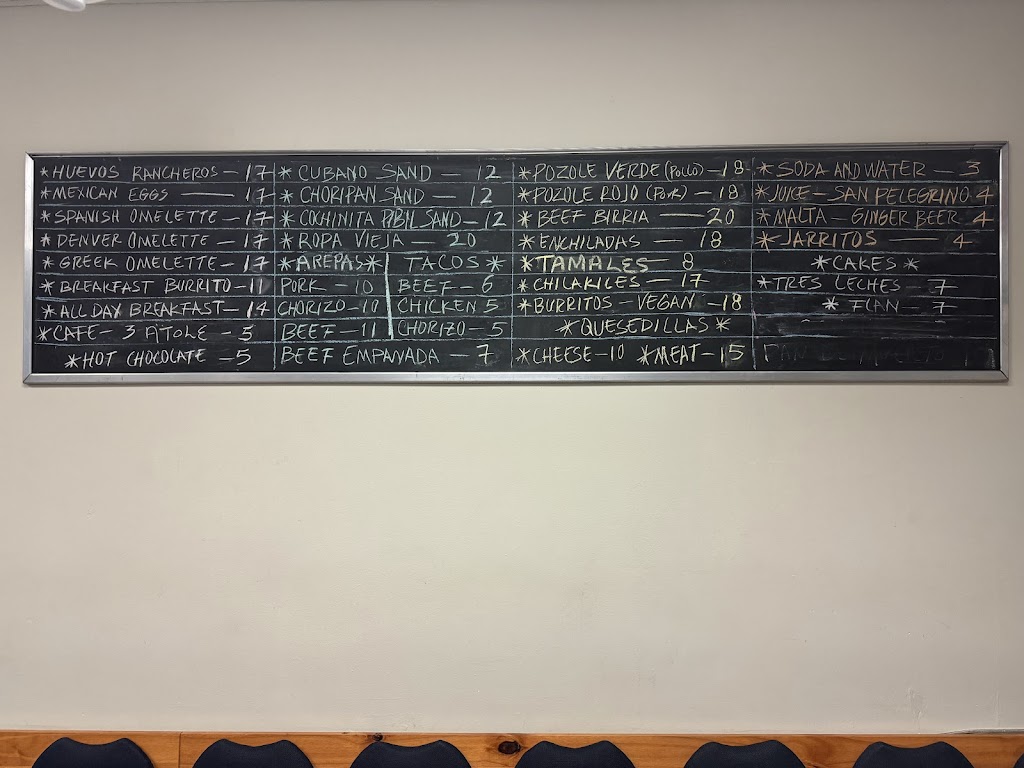 * HUEVOS RANCHEROS - 17
* MEXICAN EGGS - 17
* SPANISH OMELETTE - 17
* DENVER OMELETTE - 17
* GREEK OMELETTE - 17
* BREAKFAST BURRITO - 11
* ALL DAY BREAKFAST - 14
* CAFE - 3 ATOLE - 5
* HOT CHOCOLATE - 5
* CUBANO SAND - 12
* CHORIPAN SAND - 12
* COCHINITA PIBIL SAND - 12
* ROPA VIEJA - 20
* AREPAS *
PORK - 10
CHORIZO - 10
BEEF - 11
TACOS *
BEEF - 6
CHICKEN 5
CHORIZO - 5
BEEF EMPANADA - 7
* POZOLE VERDE (POLLO) - 18
* POZOLE ROJO (PORK) - 18
* BEEF BIRRIA - 20
* ENCHILADAS - 18
* TAMALES - 8
* CHILAKILES - 17
* BURRITOS - VEGAN - 18
* QUESEDILLAS *
* CHEESE - 10 * MEAT - 15
* SODA AND WATER - 3
* JUICE - SAN PELEGRINO 4
* MALTA - GINGER BEER 4
* JARRITOS - 4
* CAKES *
* TRES LECHES - 7
* FLAN - 7